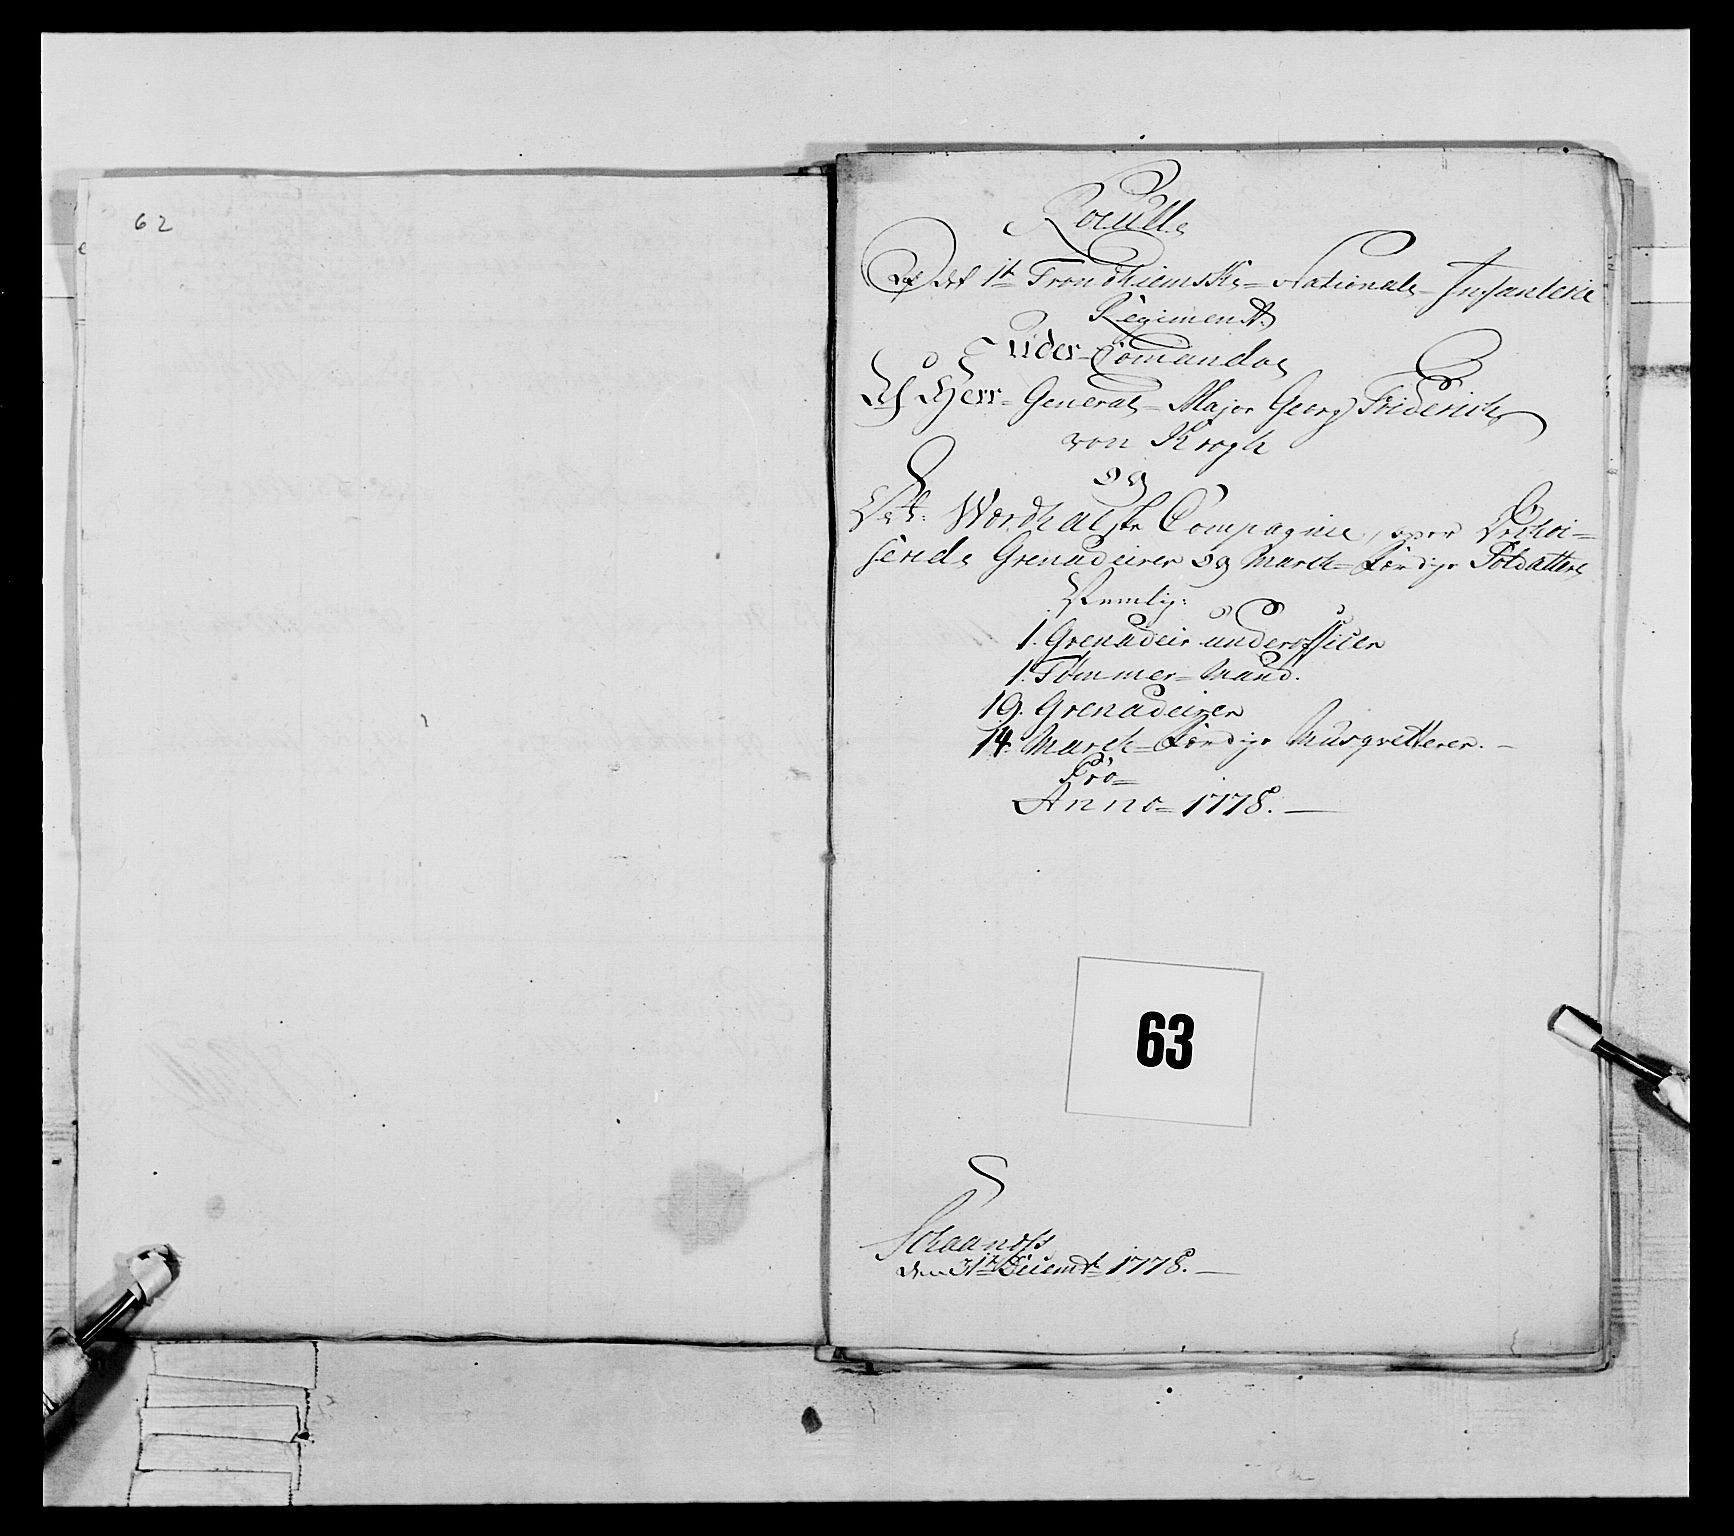 62
Roulle
Det 1te Trondhiemske= Nationale= Infanterie
Regiment
Under= Comando
Herr= General= Major Georg Friderich
von Krogh
og
Wærdhalske Compagnie, over
Grenaderer og March= færdige Soldatter
Nemlig:
1. Grenadeir underofficer
1. Tømmer= Mand.
19. Grenadeirer
14. March= færdige Musqvetterer. —
Pro=
Anno= 1778. —
63
den 31te Decembr 1778. —